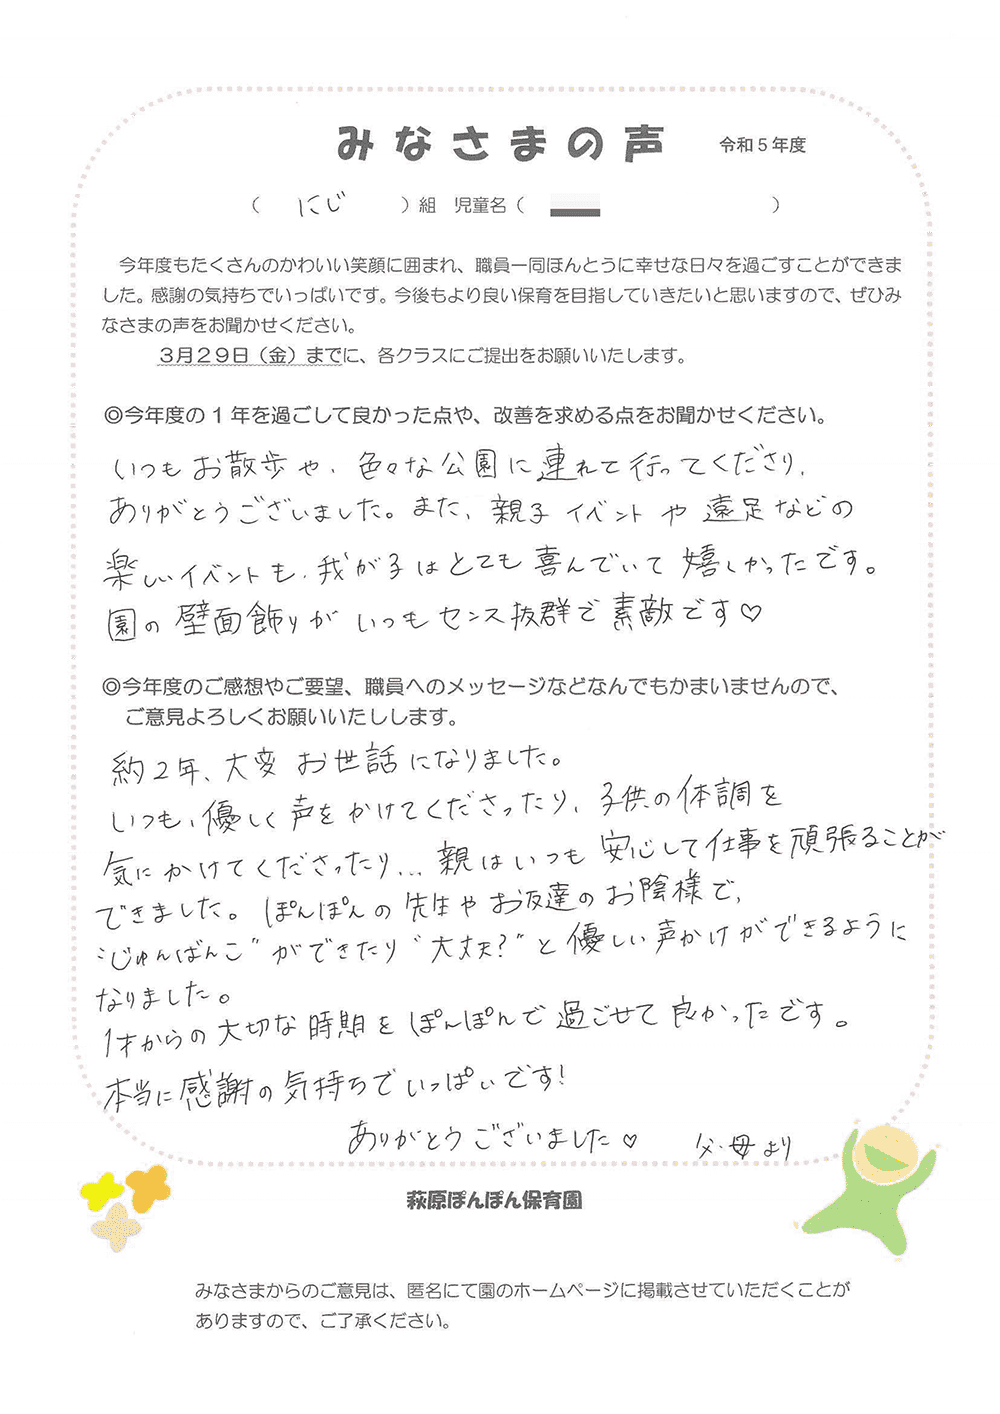 みなさまの声 令和5年度
( にじ ) 組 児童名 ( )
今年度もたくさんのかわいい笑顔に囲まれ、職員一同ほんとうに幸せな日々を過ごすことができま
した。感謝の気持ちでいっぱいです。今後もより良い保育を目指していきたいと思いますので、ぜひみ
なさまの声をお聞かせください。
3月29日（金）までに、各クラスにご提出をお願いいたします。
◎今年度の1年を過ごして良かった点や、改善を求める点をお聞かせください。
いつもお散歩や、色々な公園に連れて行ってくださり、
ありがとうございました。また、親子イベントや遠足などの
楽しいイベントも、我が子はとても喜んでいて嬉しかったです。
園の壁面飾りがいつもセンス抜群で素敵です♡
◎今年度のご感想やご要望、職員へのメッセージなどなんでもかまいませんので、
ご意見よろしくお願いいたしします。
約2年、大変お世話になりました。
いつも、優しく声をかけてくださったり、子供の体調を
気にかけてくださったり…親はいつも安心して仕事を頑張ることが
できました。ぽんぽんの先生やお友達のお陰様で、
“じゅんばんこ”ができたり“大丈夫?”と優しい声かけができるように
なりました。
1才からの大切な時期をぽんぽんで過ごせて良かったです。
本当に感謝の気持ちでいっぱいです!
ありがとうございました♡ 父・母より
萩原ぽんぽん保育園
みなさまからのご意見は、匿名にて園のホームページに掲載させていただくことが
ありますので、ご了承ください。